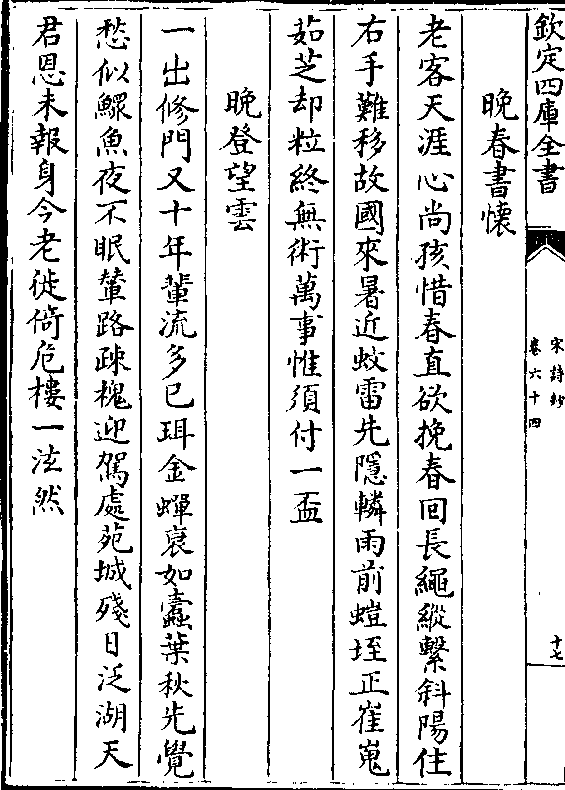 欽定四庫全書
宋詩鈔
卷六十四
十七
晚春書懷
老客天涯心尚孩惜春直欲挽春回長繩縱繫斜陽住
右手難移故國來暑近蚊雷先隱轔雨前螘垤正崔嵬
茹芝却粒終無術萬事惟須付一盃
晚登望雲
一出修門又十年輩流多已珥金蟬衰如蠹葉秋先覺
愁似鰥魚夜不眠輦路疎槐迎駕處苑城殘日泛湖天
君恩未報身今老徙倚危樓一泫然